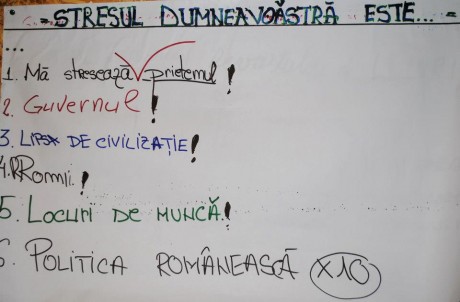 = STRESUL DUMNEAVOASTRĂ ESTE... =
...
1. Mă stresează prietenul!
2. Guvernul!
3. LIPSA DE CIVILIZAȚIE!
4. RRomii.!
5. LOCURI DE MUNCĂ.!
6. POLITICA ROMÂNEASCĂ x10